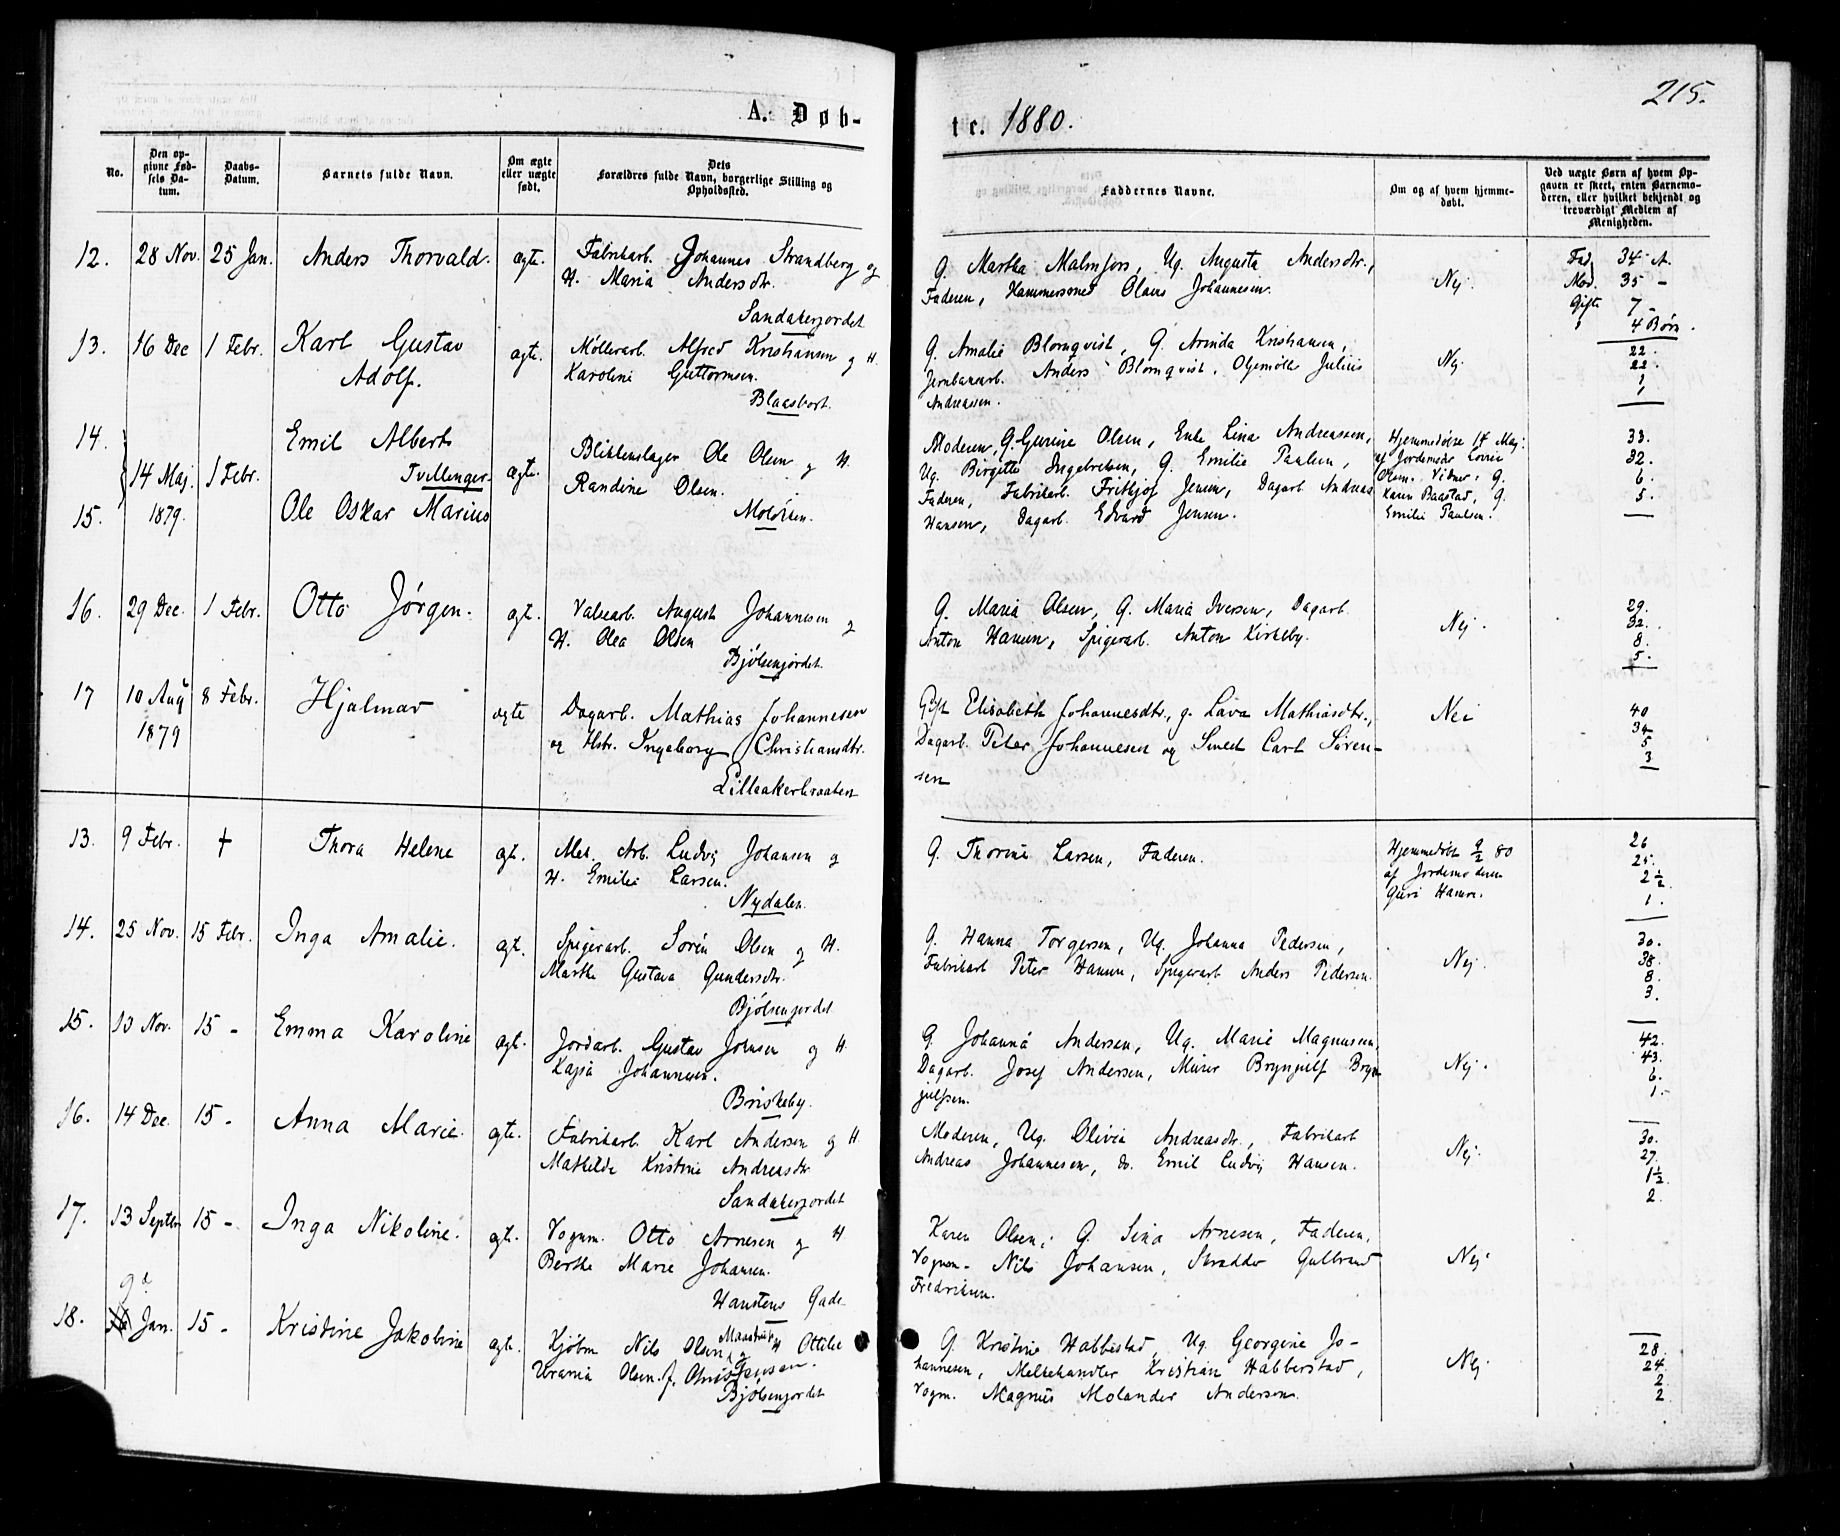 215.
A. Døb-
te. 1880.
No.
Den op-
givne Fød-
sels Da-
tum.
Daabs-
Datum.
Barnets fulde Navn.
Om ægte
eller uægte
født.
Dets
Forældres fulde Navn, borgerlige Stilling og
Opholdssted.
Faddernes Navne.
Om og af hvem hjemme-
døbt.
Ved uægte Børn af hvem Op-
gaven er skeet, enten Barnemo-
deren, eller hvilket bekjendt og
troværdigt Medlem af
Menigheden.
12. 28 Nov. 25 Jan. Anders Thorvald. ægte. Fabrikarb. Johannes Strandberg og
H. Maria Andersdtr.
Sandakerjordet
G. Martha Malmfors, Ug. Augusta Andersdtr.,
Faderen, Hammersmed Olaus Johannesen.
Nej.
Fad. 34 A.
Mod. 35 -
Gift 7 -
4 Børn.
13. 16 Dec 1 Febr. Karl Gustav
Adolf.
ægte. Møllerarb. Alfred Kristiansen og H.
Karoline Guttormsen.
Blaasbort.
G. Amalie Blomqvist, G. Arinda Kristiansen,
Jernbanearb. Anders Blomqvist, Oljemølle Julius
Andreassen.
Nej
22.
22.
1
1
14. Emil Albert
14 Maj. 1 Febr. Tvillinger. ægte.
15. 1879. Ole Oskar Marius
Blikkenslager Ole Olsen og H.
Randine Olsen.
Moløkken.
Moderen, G. Gurine Olsen, Enke Lina Andreassen,
Ug. Birgitte Ingebretsen, G. Emilie Paulsen,
Faderen, Fabrikarb. Frithjof Jensen, Dagarb. Andreas
Hansen, Dagarb. Edvard Jensen.
Hjemmedøbte 14 Maj.
af Jordemoder Lovise
Olsen. Vidner, G.
Karen Baastad, G.
Emilie Paulsen.
33.
32.
6.
5.
16. 29 Dec. 1 Febr. Otto Jørgen. ægt. Valsearb. August Johannesen og
H. Olea Olsen
Bjølsenjordet.
G. Maria Olsen, G. Maria Iversen, Dagarb.
Anton Hansen, Spigerarb. Anton Kirkeby.
Nej.
29.
32.
8.
5.
17 10 Aug 8 Febr. Hjalmar ægte
1879
Dagarb. Mathias Johannesen
og Hstr. Ingeborg Christiansdtr.
Lilleakerbraaten
Gift Elisabeth Johannesdtr., g. Lava Mathiasdtr.,
Dagarb. Peter Johannesen og Smed Carl Søren-
sen
Nei
40
34
5
3
13. 9 Febr. † Thora Helene ægt. Mek. Arb. Ludvig Johansen og
H. Emilie Larsen.
Nydalen.
G. Thorine Larsen, Faderen.
Hjemmedøbt 9/2 80
af Jordemoderen
Guri Hansen.
26
25.
2 1/2
1.
14. 25 Nov. 15 Febr. Inga Amalie. ægt. Spigerarb. Sorén Olsen og H.
Marthe Gustava Gundersdtr.
Bjølsenjordet
G. Hanna Torgersen, Ug. Johanna Pedersen,
Fabrikarb Peter Hansen, Spigerarb Anders Pedersen.
Nej.
30.
38.
8.
3.
15. 13 Nov. 15 - Emma Karoline ægt. Jordarb. Gustav Johnsen og H.
Kajsa Johannesen.
Briskeby.
G. Johanna Andersen, Ug. Marie Magnussen,
Dagarb. Josef Andersen, Murer Brynjulf Bryn-
julfsen.
Nej.
42.
43.
6.
1.
16. 14 Dec. 15 - Anna Marie. ægte. Fabrikarb. Karl Andersen og H.
Mathilde Kristine Andreasdtr
Sandakerjordet
Moderen, Ug. Olivia Andreasdtr., Fabrikarb
Andreas Johannesen, do. Emil Ludvig Hansen.
Nej.
30.
27.
1 1/2.
2.
17. 13 Septbr 15 - Inga Nikoline. ægt. Vognm. Otto Arnesen og H
Berthe Marie Johansen.
Hanstens Gade
Karen Olsen, G. Lina Arnesen, Faderen,
Vognm. Nils Johansen, Skrædder Gulbrand
Fredriksen.
Nej
18. 9d Jan. 15 - Kristine Jakobine ægte. Kjøbm Nils Olsen Maastad og H Ottilie
Urania Olsen f. Christensen.
Bjølsenjordet
G. Kristine Habbestad, Ug. Georgine Jo-
hannesen, Melkehandler Kristian Habberstad,
Vognm. Magnus Molander Andersen.
Nej.
28.
24.
2
2